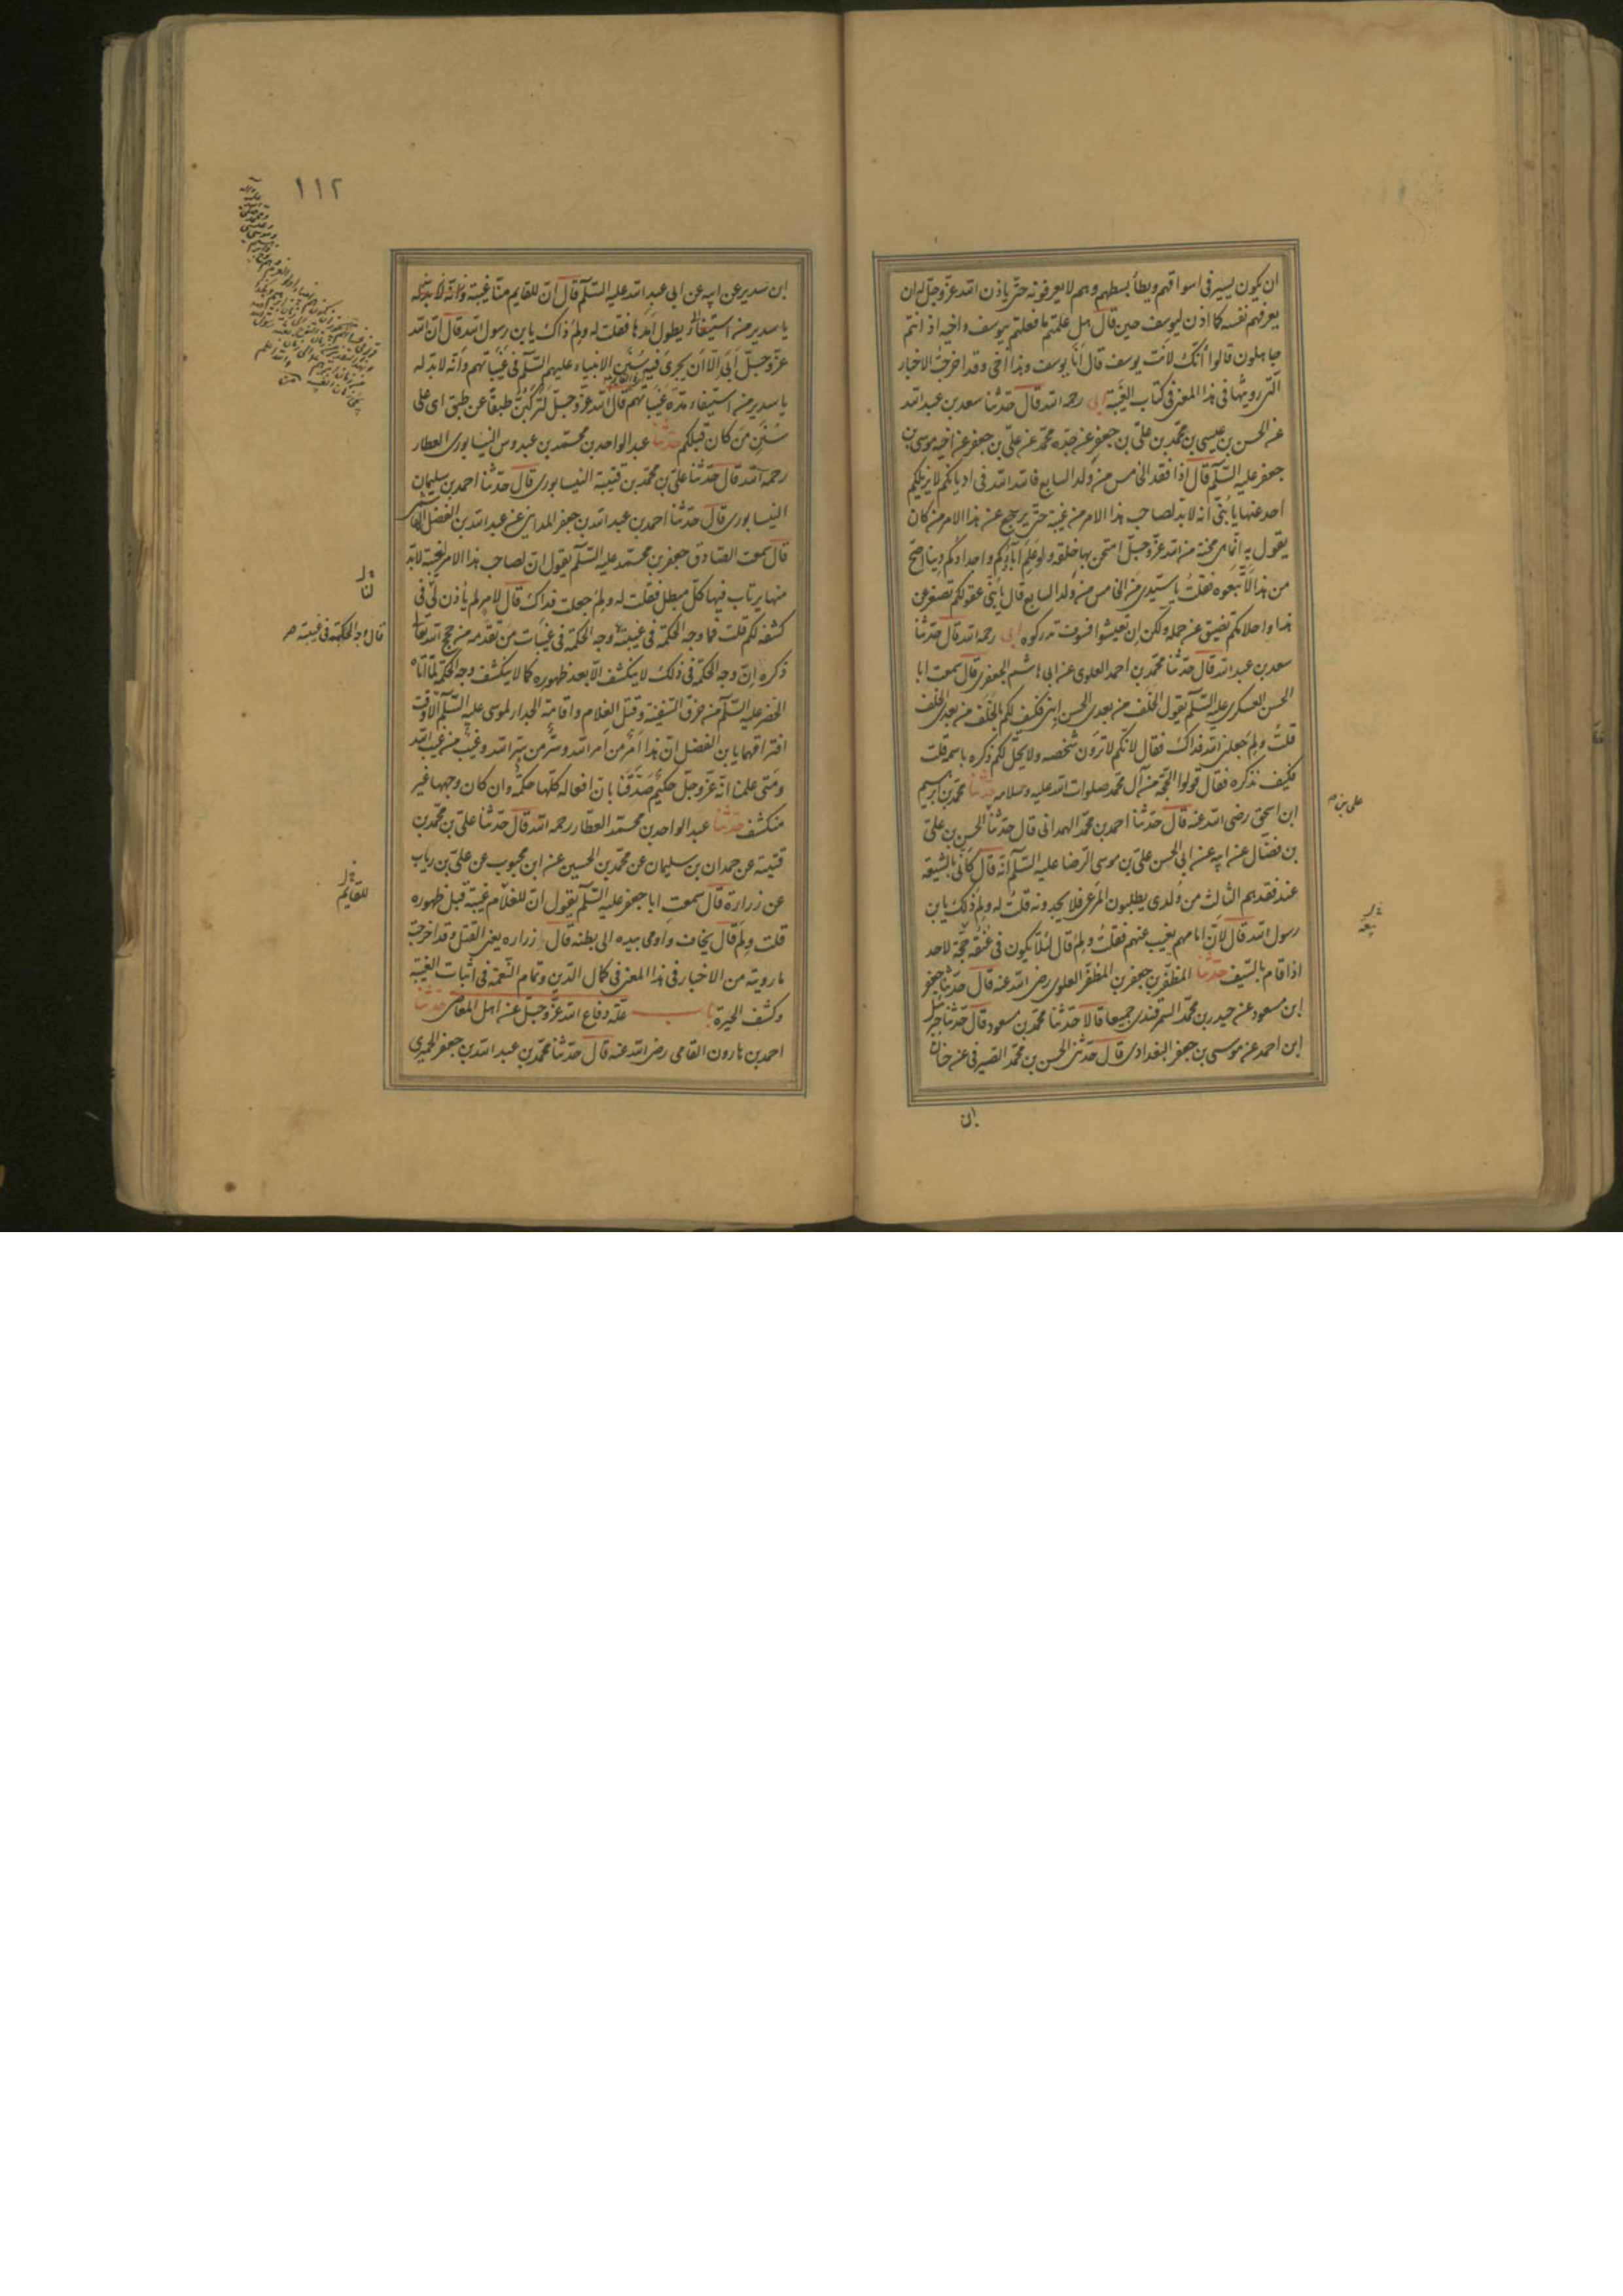 ان يكون يسير فى اسواقهم ويطأ بسطهم وهم لا يعرفونه حتى ياذن الله عزّ وجلّ له ان
يعرفهم نفسه كما اذن ليوسف حين قال هل علمتم ما فعلتم بيوسف واخيه اذ انتم
جاهلون قالوا أئنك لانت يوسف قال أنا يوسف وهذا أخى وقد اخرجت الاخبار
الّتى رويتها فى هذا المعنى فى كتاب الغيبة ابى رحمه الله قال حدّثنا سعد بن عبد الله
عن الحسن بن عيسى بن محمّد بن علىّ بن جعفر عن جدّه محمّد عن علىّ بن جعفر عن اخيه موسى بن
جعفر عليه السّلم قال اذا فقد الخامس من ولد السابع فالله الله فى اديانكم لا يزيلكم
احد عنها يا بُنَىّ انه لا بد لصاحب هذا الامر من غيبة حتى يرجع عن هذا الامر من كان
يقول به انّما هى محنة من الله عزّ وجلّ امتحن بها خلقه ولو علم اباؤكم واجدادكم دينا اصحّ
من هذا لاتّبعوه فقلت يا سيّدى مَن الخامس من ولد السابع قال يا بُنَىّ عقولكم تصغر عن
هذا واحلامكم تضيق عن حمله ولكن ان تعيشوا فسوف تدركوه ابى رحمه الله قال حدّثنا
سعد بن عبد الله قال حدّثنا محمّد بن احمد العلوى عن ابى هاشم الجعفرى قال سمعت ابا
الحسن العسكرى عليه السّلم يقول الخلف من بعدى الحسن ابنى فكيف لكم بالخلف من بعد الخلف
قلت ولِمَ جعلنى الله فداك فقال لانكم لا ترون شخصه ولا يحلّ لكم ذكره باسمه قلت
فكيف نذكره فقال قولوا الحجّة من آل محمّد صلوات الله عليه وسلامه حدّثنا محمّد بن ابرهيم
ابن اسحق رضى الله عنه قال حدّثنا احمد بن محمّد الهمدانى قال حدّثنا الحسن بن علىّ
بن فضّال عن ابيه عن ابى الحسن علىّ بن موسى الرضا عليه السّلم انّه قال كانّى بالشيعة
عند فقدهم الثالث من ولدى يطلبون المرعى فلا يجدونه قلت له ولِمَ ذلك يا بن
رسول الله قال لانّ امامهم يغيب عنهم فقلت ولِمَ قال لئلّا يكون فى عنقه حجّة لاحد
اذا قام بالسّيف حدّثنا المظفّر بن جعفر بن المظفّر العلوى رضى الله عنه قال حدّثنا جعفر
ابن مسعود عن حيدر بن محمّد السّمرقندى جميعا قالا حدّثنا محمّد بن مسعود قال حدّثنا جبرئيل
ابن احمد عن موسى بن جعفر البغدادى قال حدّثنى الحسن بن محمّد الصّيرفى عن حنان
علىّ بن
ابن
١١٢
ابن سدير عن ابيه عن ابى عبد الله عليه السّلم قال انّ للقايم منّا غيبة
يا سدير من استيفاء يطول امدها فقلت له ولِمَ ذاك يا بن رسول الله قال انّ الله
عزّ وجلّ أبى الّا ان يجرى فيه سنن الانبياء عليهم السّلم فى غيباتهم وانّه لا بد له
يا سدير من استيفاء مدّة غيباتهم قال الله عزّ وجلّ لتركبنّ طبقا عن طبق اى على
سنن مَن كان قبلكم حدّثنا عبد الواحد بن محمّد بن عبدوس النيسابورى العطار
رحمه الله قال حدّثنا علىّ بن محمّد بن قتيبة النيسابورى قال حدّثنا احمد بن سليمان
النيسابورى قال حدّثنا احمد بن عبد الله بن جعفر المداينى عن عبد الله بن الفضل الهاشمى
قال سمعت الصّادق جعفر بن محمّد عليه السّلم يقول ان لصاحب هذا الامر لغيبة لابدّ
منها يرتاب فيها كلّ مبطل فقلت له ولِمَ جعلت فداك قال لامر لم يأذن لى فى
كشفه لكم قلت فما وجه الحكمة فى غيبته وجه الحكمة فى غيبات من تقدّمه من حجج الله تعالى
ذكره انّ وجه الحكمة فى ذلك لا ينكشف الّا بعد ظهوره كما لا ينكشف وجه الحكمة لما اتاه
الخضر عليه السّلم من خرق السّفينة وقتل الغلام واقامة الجدار لموسى عليه السّلم الّا وقت
افتراقهما يا بن الفضل انّ هذا أمر من أمر الله وسرّ من سرّ الله وغيب من غيب الله
ومتى علمنا انّه عزّ وجلّ حكيم صدّقنا بانّ افعاله كلّها حكمة وان كان وجهها غير
منكشف حدّثنا عبد الواحد بن محمّد العطّار رحمه الله قال حدّثنا علىّ بن محمّد بن
قتيبة عن حمدان بن سليمان عن محمّد بن الحسين عن ابن محبوب عن علىّ بن رياب
عن زرارة قال سمعت ابا جعفر عليه السّلم يقول انّ للغلام غيبة قبل ظهوره
قلت ولِمَ قال يخاف واومى بيده الى بطنه قال زرارة يعنى القتل وقد اخرجت
ما رويته من الاخبار فى هذا المعنى فى كمال الدّين وتمام النّعمة فى اثبات الغيبة
وكشف الحيرة باب علّة دفاع الله عزّ وجلّ عن اهل المعاصى حدّثنا
احمد بن هارون القامى رضى الله عنه قال حدّثنا محمّد بن عبد الله بن جعفر الحميرى
لنا
قال وجه الحكمة فى غيبته
للقايم